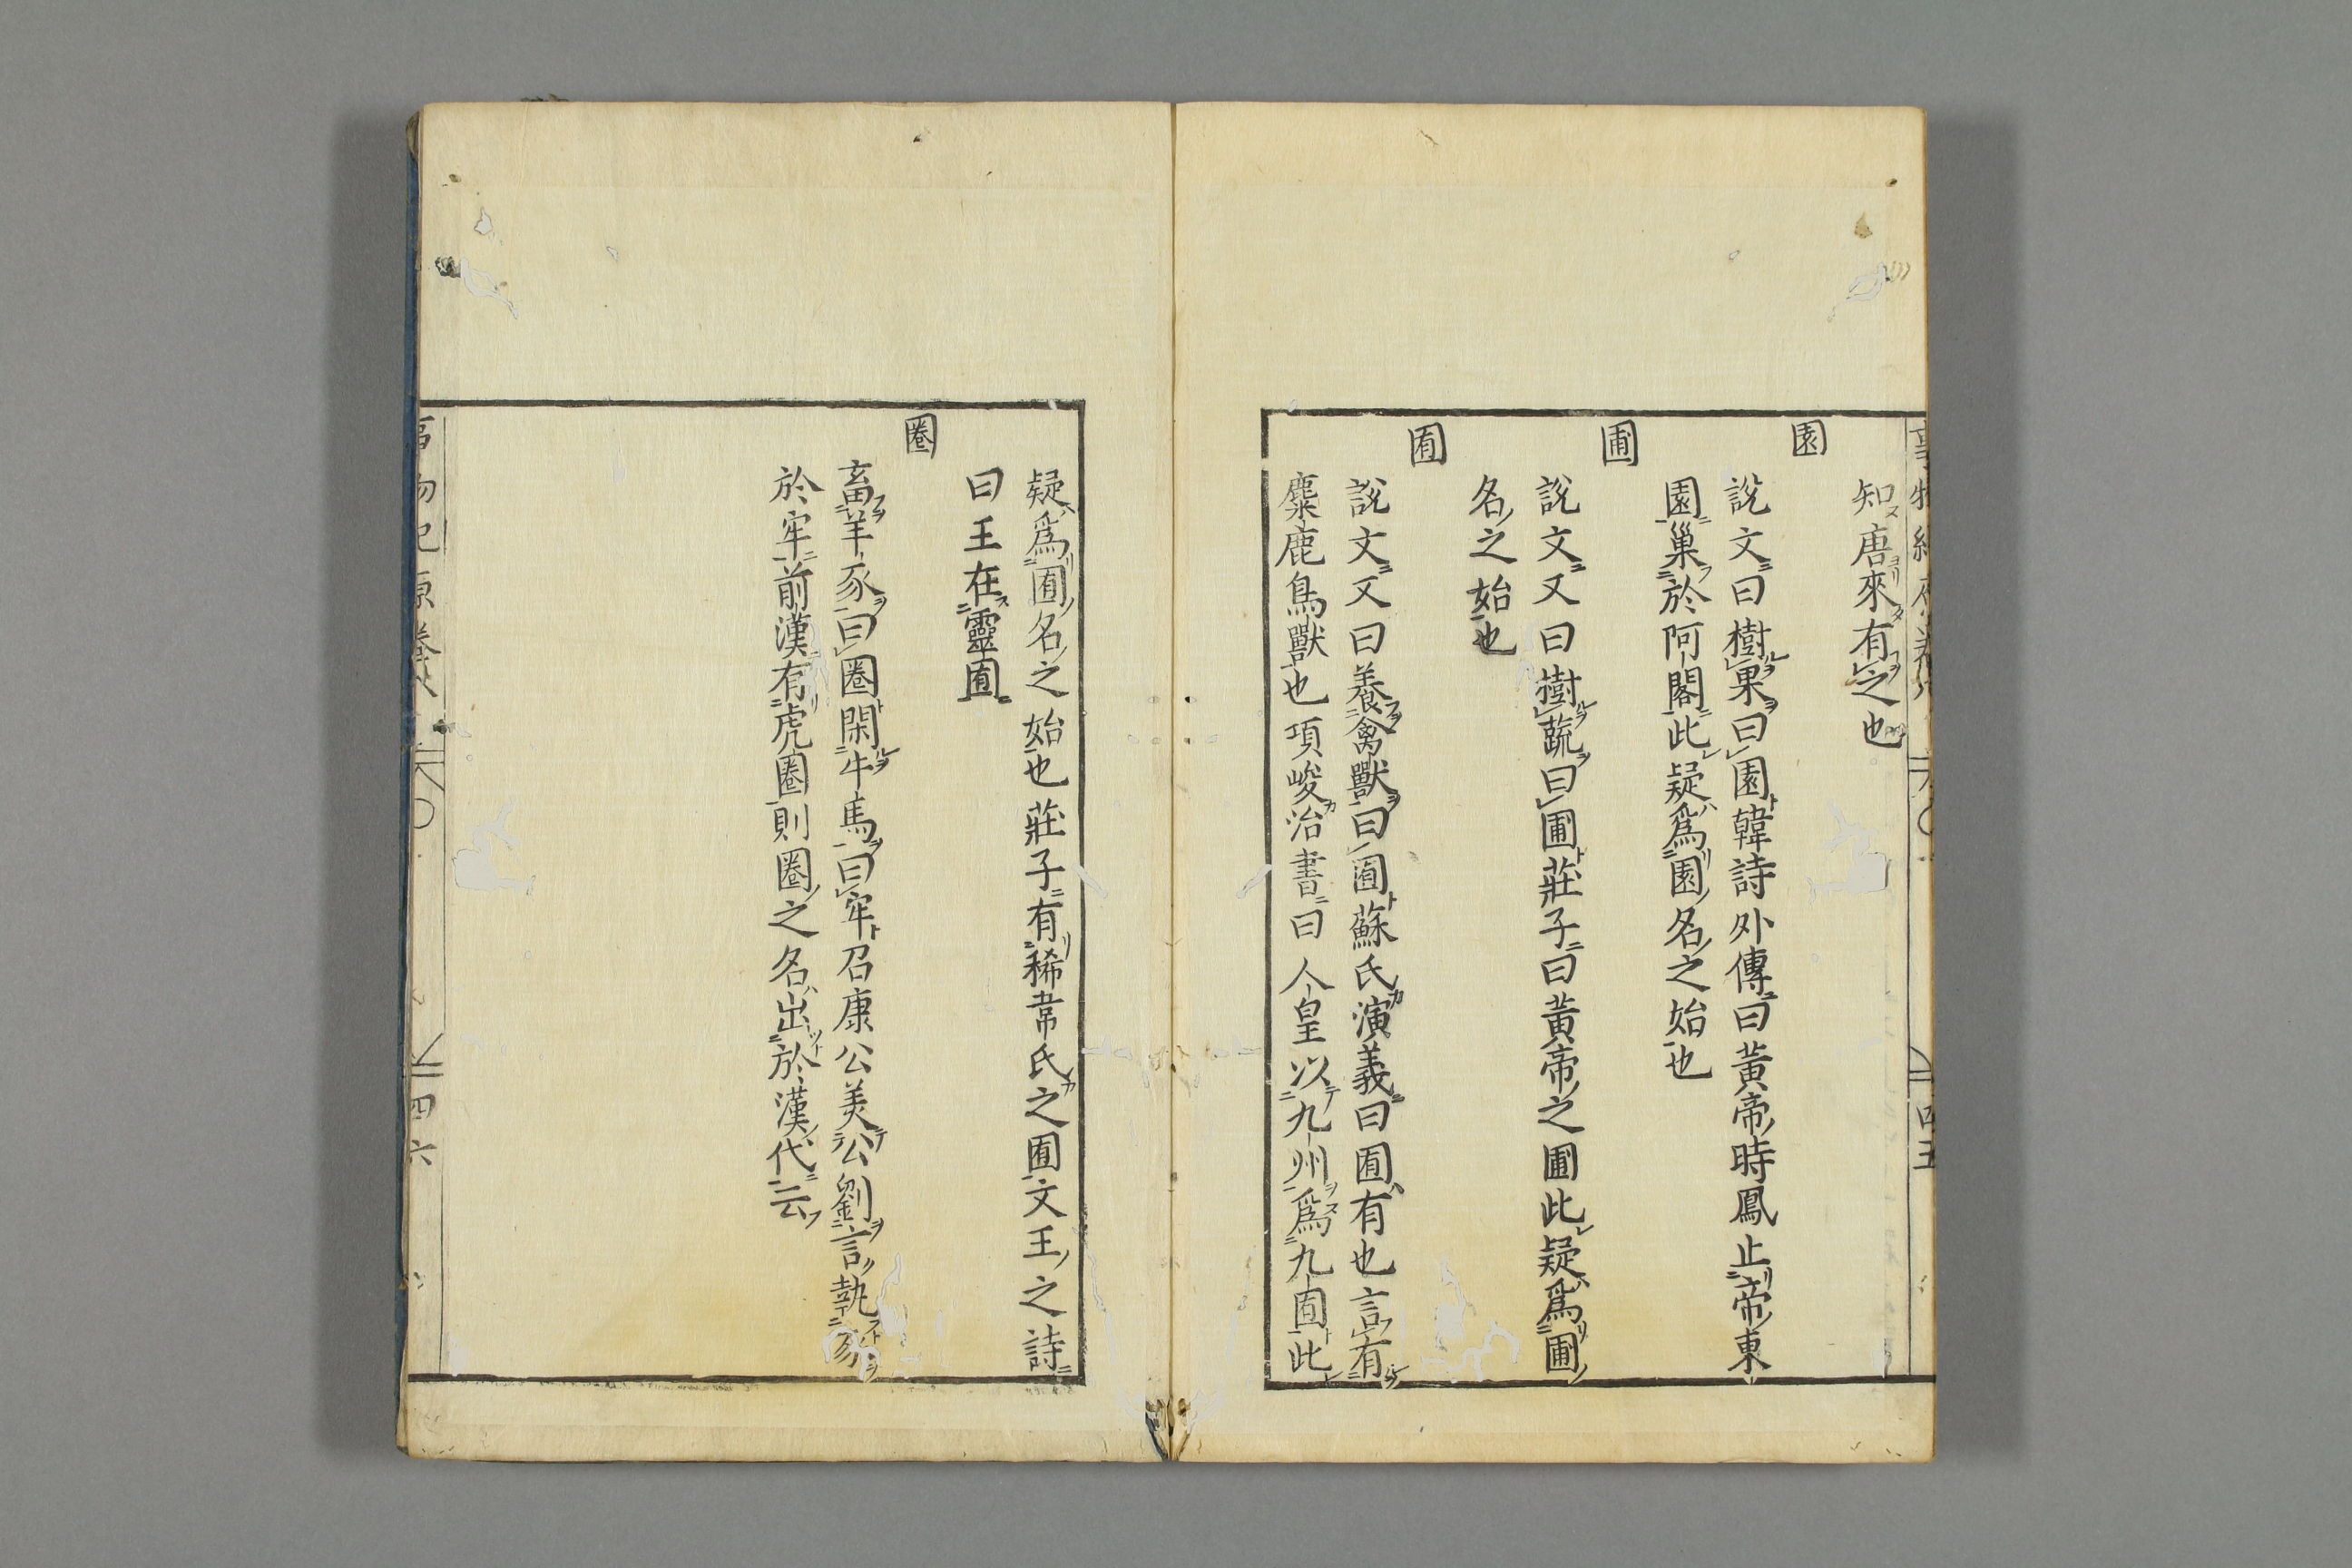 知唐來有之也
園
說文曰樹果曰園韓詩外傳曰黃帝時鳳止帝東
園巢於阿閣此疑爲園名之始也
圃
說文又曰樹蔬曰圃莊子曰黃帝之圃此疑爲圃
名之始也
囿
說文又曰養禽獸曰囿蘇氏演義曰囿有也言有
麋鹿鳥獸也項峻治書曰人皇以九州爲九囿此
疑爲囿名之始也莊子有稀韋氏之囿文王之詩
曰王在靈囿
圈
畜羊豕曰圈閑牛馬曰牢召康公美公劉言執豕
於牢前漢有虎圈則圈之名出於漢代云
四六